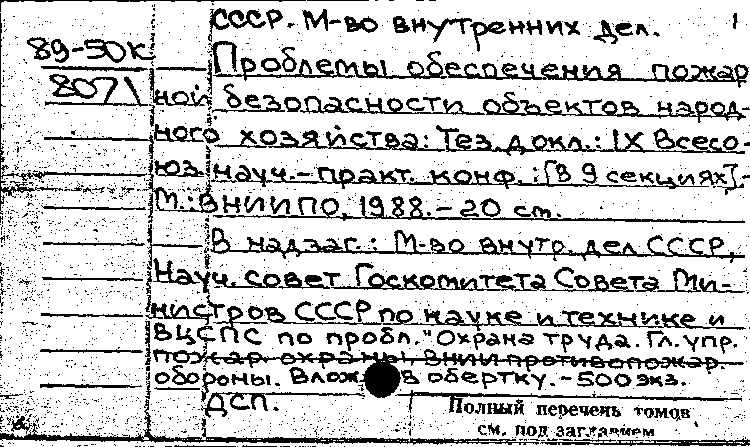 СССР. М-во внутренних дел. 1
89-50к
8071
Проблемы обеспечения пожар
ной безопасности объектов народ-
ного хозяйства: Тез. докл.: IX Всесо-
юз. науч.-практ. конф.: [В 9 секциях].-
М.: ВНИИПО, 1988.-20 см.
В надзаг.: М-во внутр. дел СССР,
Науч. совет Госкомитета Совета Ми-
нистров СССР по науке и технике и
ВЦСПС по пробл. "Охрана труда. Гл. упр.
пожар. охраны, ВНИИ противопожар.
обороны. Влож. в обертку.-500 экз.
ДСП.
Полный перечень томов
см. под заглавием